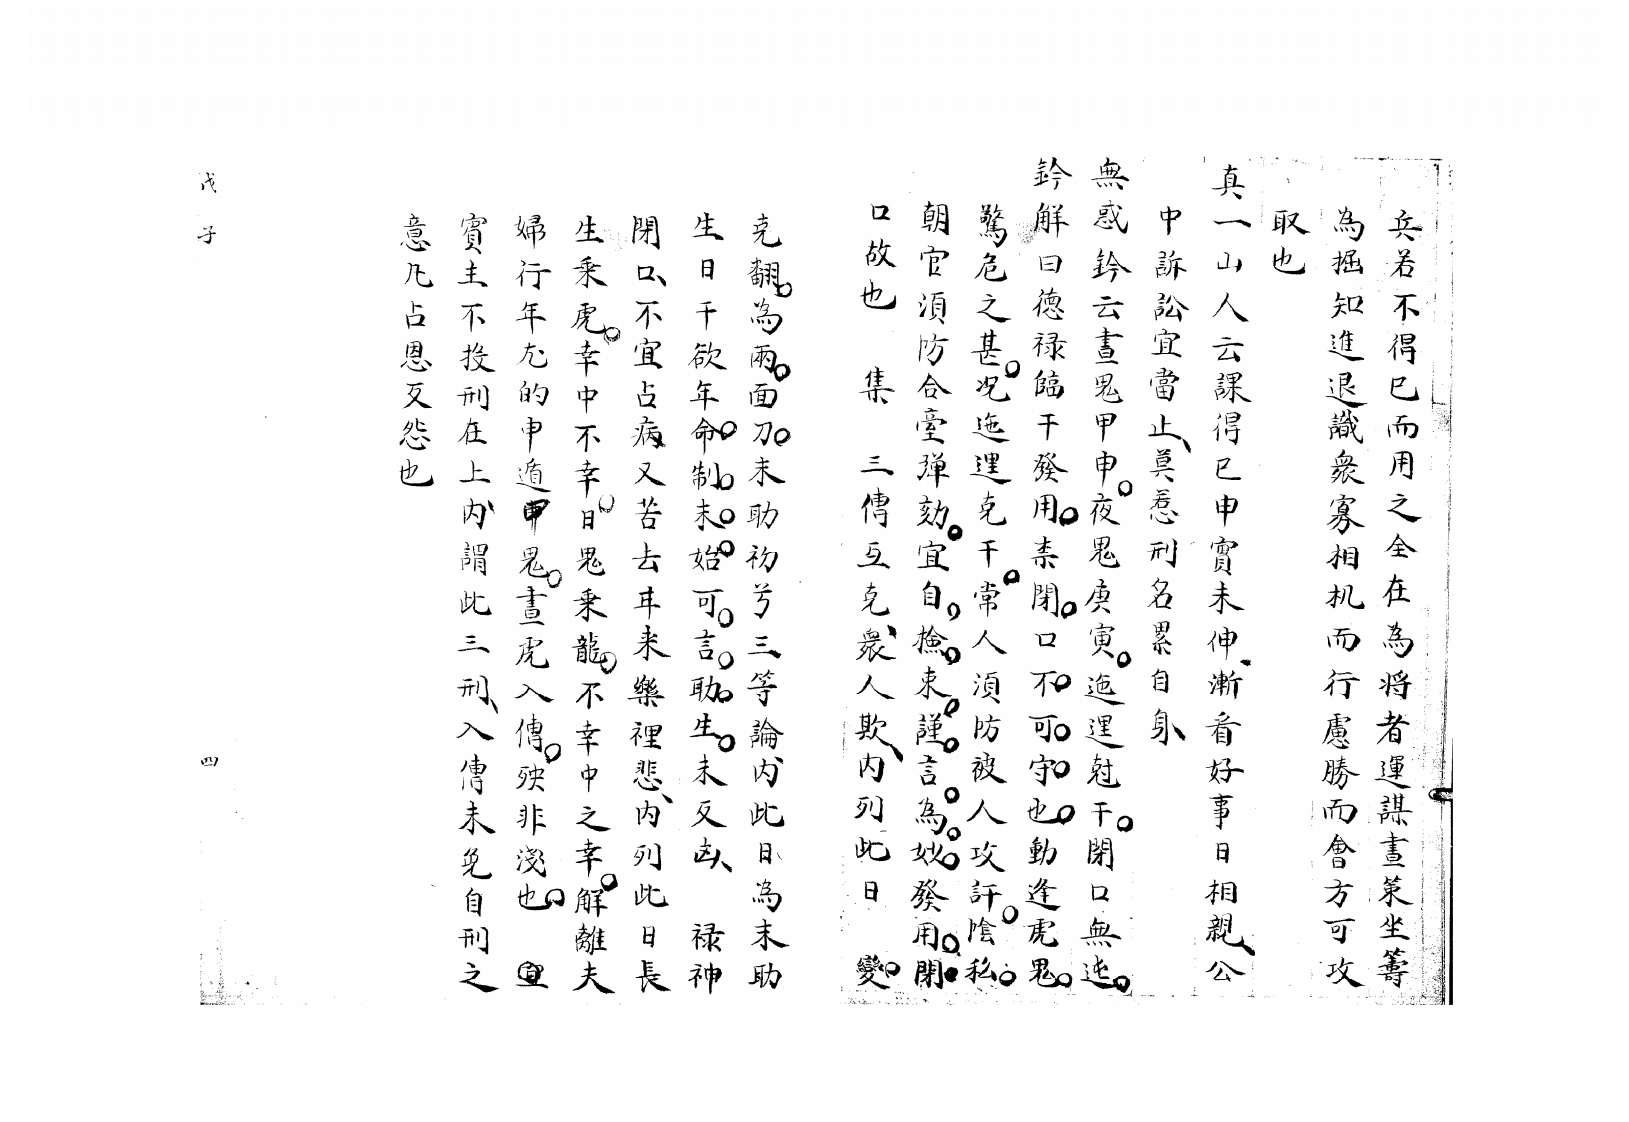 兵若不得已而用之全在為將者運謀畫策坐籌
為掘知進退識衆寡相机而行慮勝而會方可攻
取也
真一山人云課得巳申實未伸漸看好事日相親公
中訴訟宜當止莫惹刑名累自身
無惑鈐云晝鬼甲申夜鬼庚寅迤逞尅干閉口無迍
鈐解曰德祿臨干發用柰閉口不可守也動逢虎鬼
驚危之甚况迤逞克干常人須防被人攻訐陰私
朝官須防合臺彈劾宜自檢束謹言為妙發用閉
口故也 集 三傳互克衆人欺內列此日 變
克翻為兩面刀末助初兮三等論內此日為末助
生日干欲年命制末始可言助生末反凶 祿神
閉口不宜占病又苦去耳来樂裡悲內列此日長
生乘虎幸中不幸日鬼乘龍不幸中之幸解離夫
婦行年尤的申遁甲鬼晝虎入傳殃非淺也宜
賓主不投刑在上內謂此三刑入傳未免自刑之
意凡占恩反怨也
戊子
四